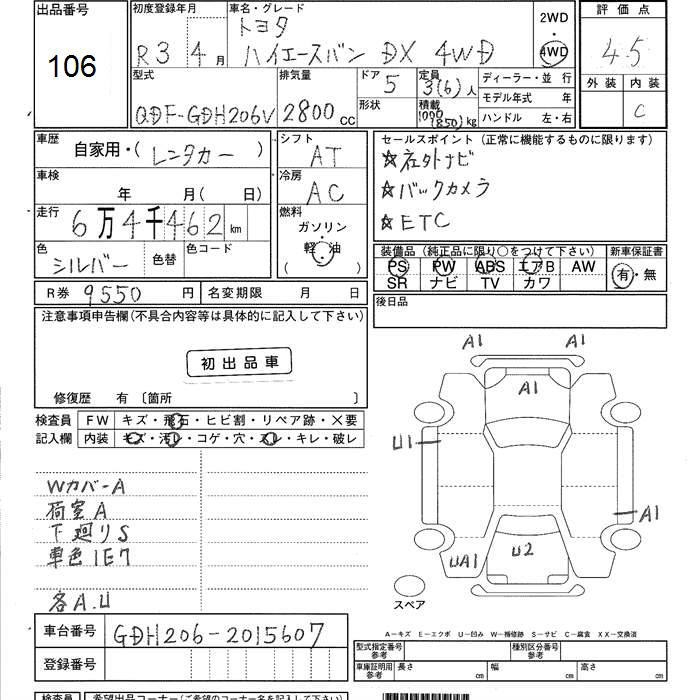 出品番号
106
初度登録年月
R3年 4月
車名・グレード
トヨタ
ハイエースバン DX 4WD
2WD
・
4WD
評価点
4.5
外装 内装
C
型式
QDF-GDH206V
排気量
2800 cc
ドア
5
形状
定員
3(6)人
積載
1000
(850)kg
ディーラー・並 行
モデル年式 年
ハンドル 左・右
車歴
自家用・( レンタカー )
シフト
AT
車検
年 月( 日)
冷房
AC
走行
6万4千462 km
燃料
ガソリン
軽 油
( )
色
シルバー
色替
色コード
R券 9550 円
名変期限 月 日
セールスポイント(正常に機能するものに限ります)
☆社外ナビ
☆バックカメラ
☆ETC
装備品(純正品に限り○をつけて下さい)
PS PW ABS エアB AW
SR ナビ TV カワ
新車保証書
有・無
後日品
注意事項申告欄(不具合内容等は具体的に記入して下さい)
初出品車
修復歴 有〔箇所 〕
検査員
記入欄
FW キズ・飛石・ヒビ割・リペア跡・X要
内装 キズ・汚レ・コゲ・穴・スレ・キレ・破レ
WカバーA
荷室A
下廻りS
車色1E7
各A.U
A1 A1
A1
U1
A1
UA1
U2
スペア
車台番号 GDH206-2015607
登録番号
A-キズ E-エクボ U-凹み W-補修跡 S-サビ C-腐食 XX-交換済
型式指定番号
参考
種別区分番号
参考
車庫証明用
参考
長さ cm 幅 cm 高さ cm
検査員 希望出品コーナー(ご希望のコーナー名を記入して下さい)